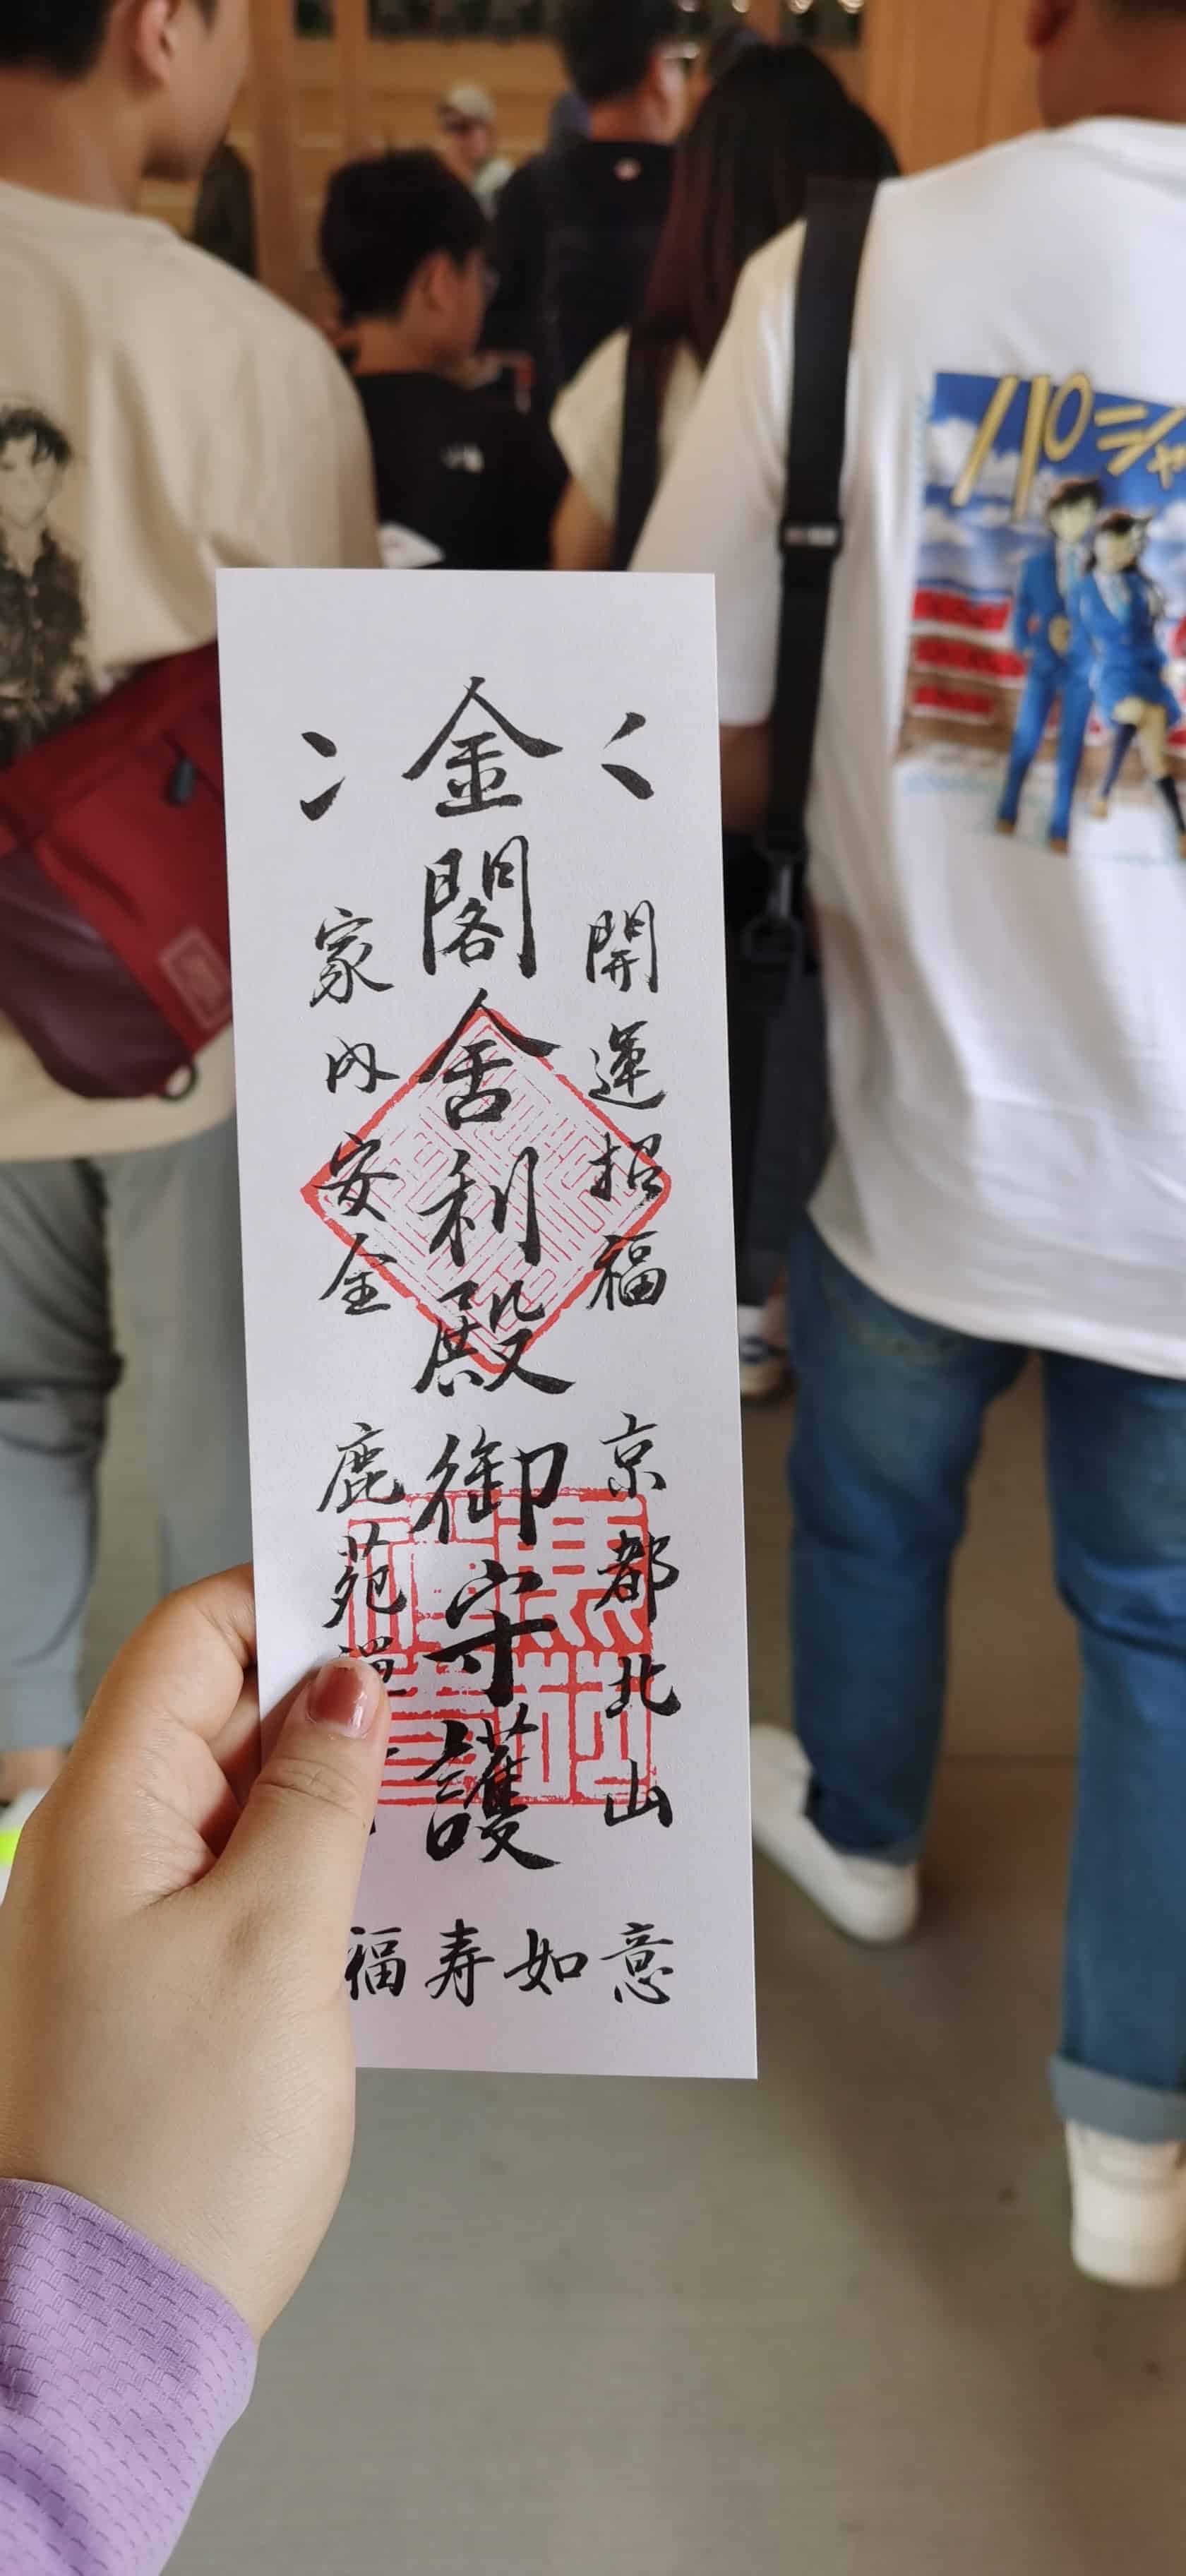 開運招福 京都北山
金閣舎利殿御守護
家内安全 鹿苑禅
福寿如意
パシャ